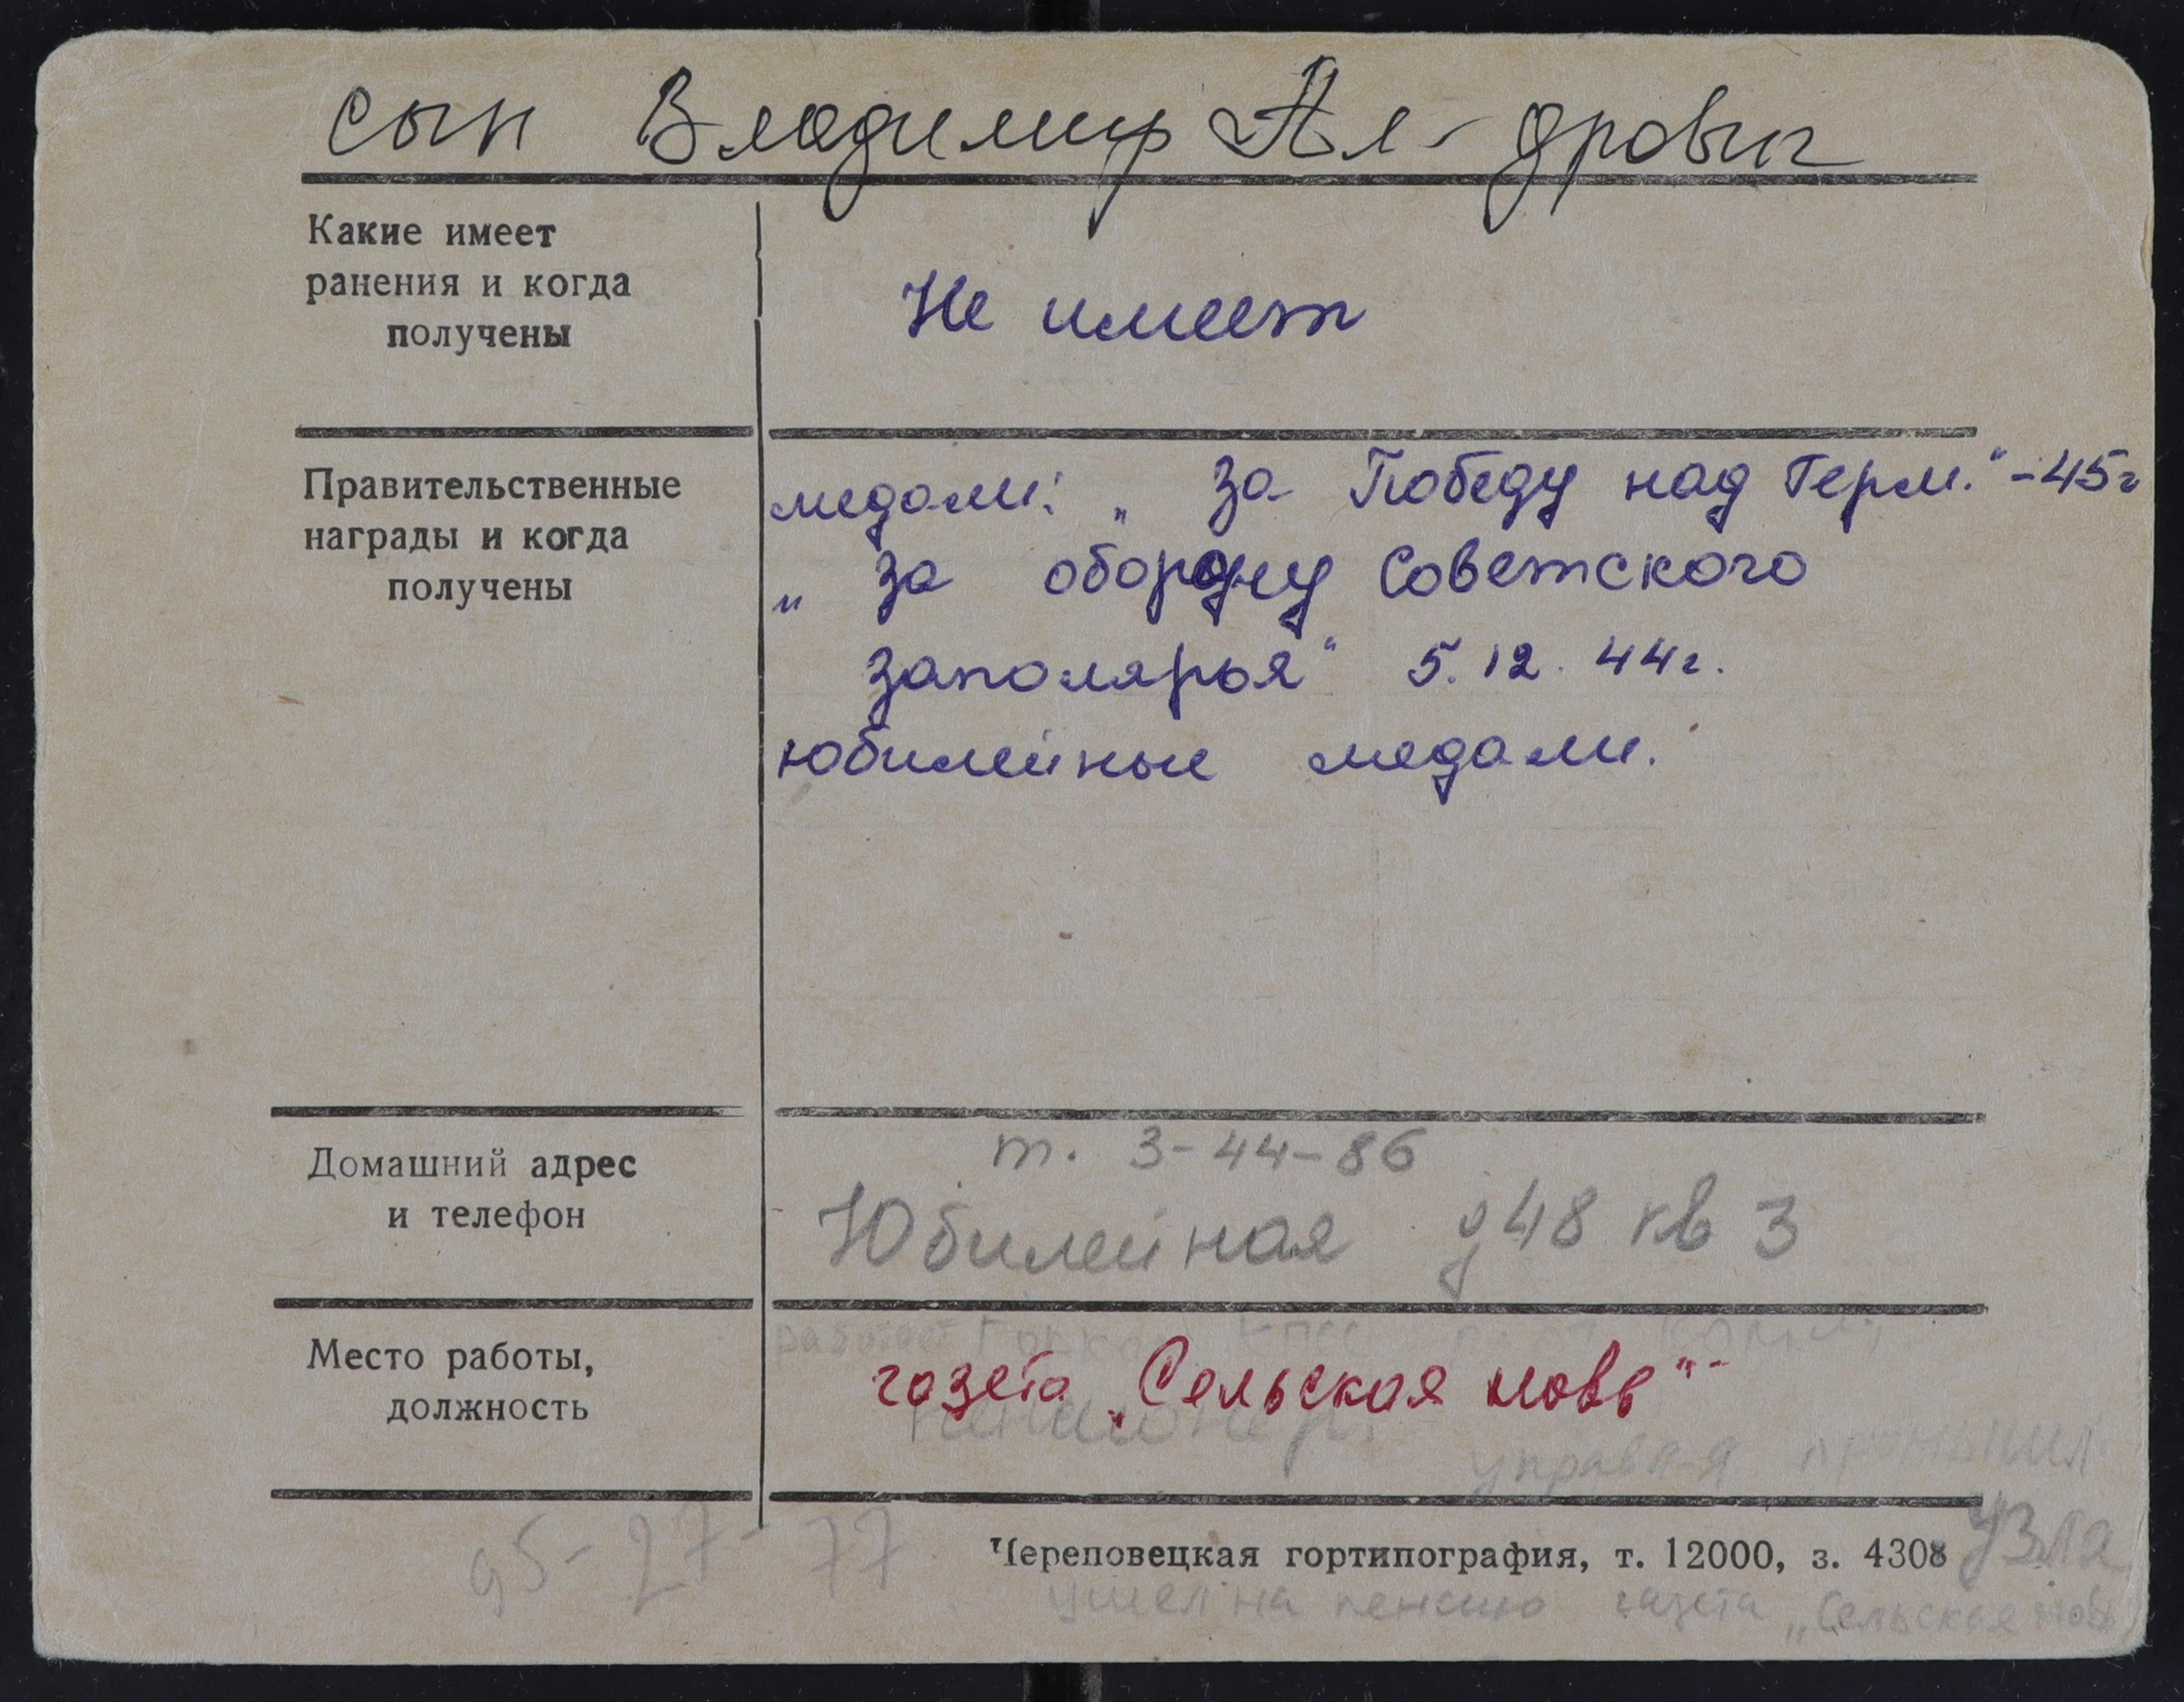 сын Владимир Ал-дрович
Какие имеет
ранения и когда
получены
Не имеет
Правительственные
награды и когда
получены
медали: „За Победу над Герм." - 45г
„За оборону Советского
Заполярья" 5.12.44г.
юбилейные медали.
Домашний адрес
и телефон
т. 3-44-86
Юбилейная д 48 кв 3
Место работы,
должность
работает Горком КПСС
газета „Сельская новь"
пенсионер.
узла
95-27-77
Череповецкая гортипография, т. 12000, з. 4308
ушел на пенсию газета „Сельская новь